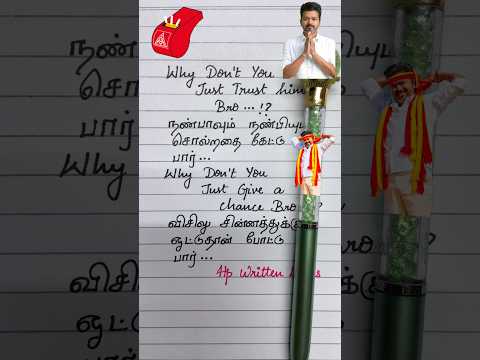 Why Don't You
Just Trust him
Bro...!?
நண்பாவும் நண்பியுட
சொல்றதை கேட்டு
பார்...
Why Don't You
Just Give a
chance Bro ?
விசிலு சின்னத்துக்கு
ஓட்டுதான் போட்டு
பார்...
Hp Written